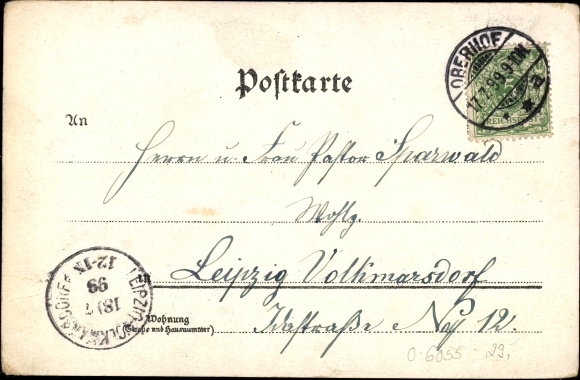 Postkarte
OBERHOF
17.7.99.9-10N.
* * a
REICHSPOST
An
Herrn u. Frau Pastor Sparwald
Wohlg.
in Leipzig Volkmarsdorf
LEIPZIG-VOLKMARSDORF
18/7
99
12-1N
Wohnung
(Straße und Hausnummer)
Idastraße No 12.
0-6055-29,-